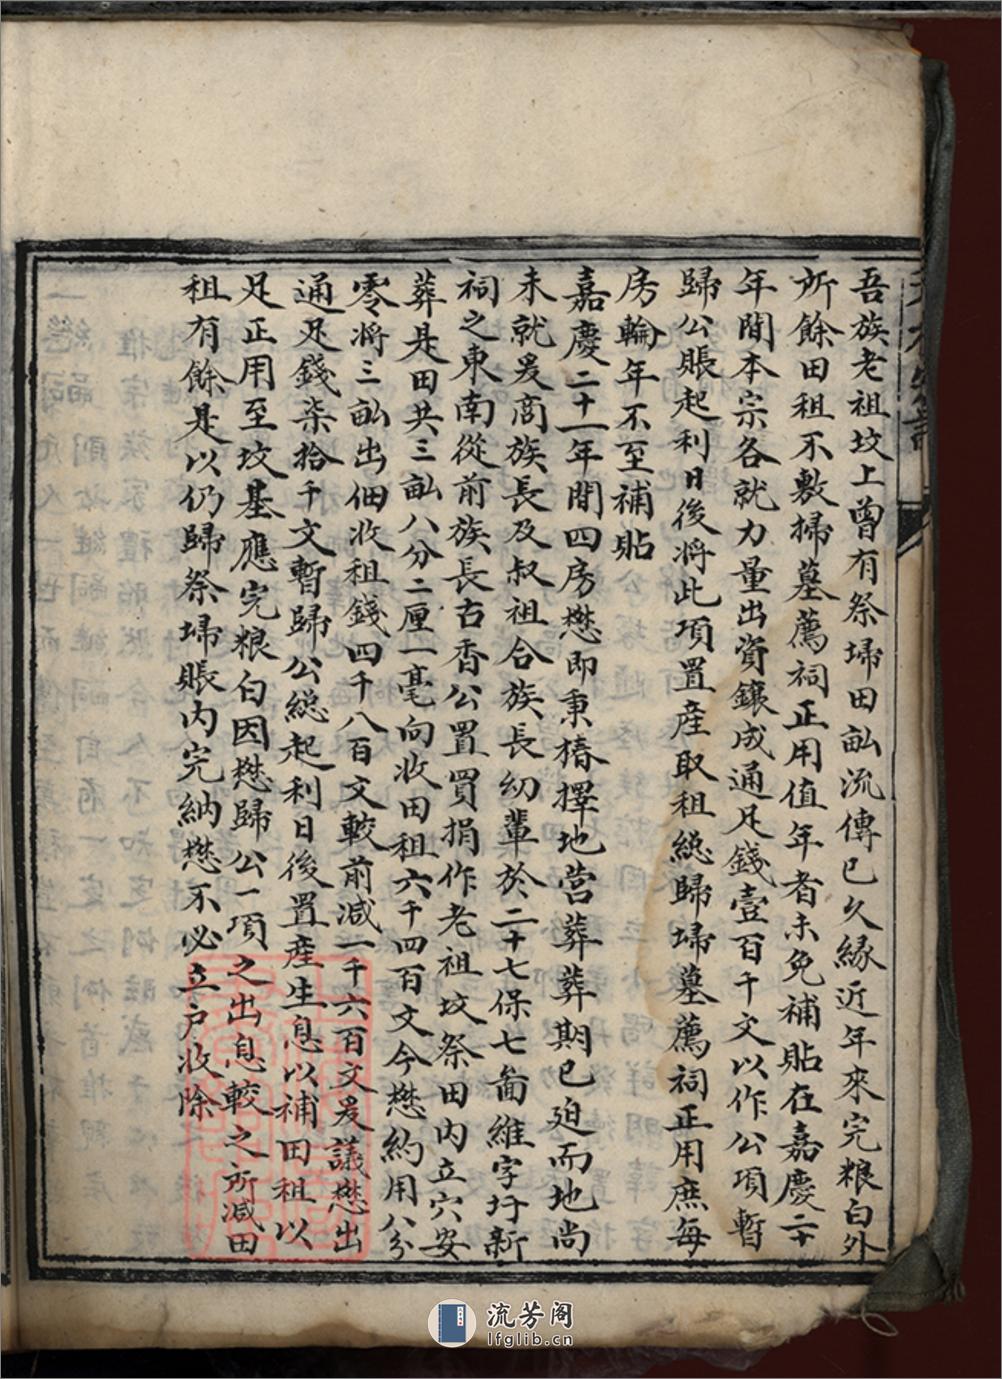 吾族老祖坟上曾有祭埽田畝流傳已久緣近年來完粮白外
所餘田租不敷掃墓薦祠正用值年者未免補貼在嘉慶二十
年間本宗各就力量出資鑲成通足錢壹百千文以作公項暫
歸公賬起利日後将此項置產取租緫歸埽墓薦祠正用庶每
房輪年不至補貼
嘉慶二十一年間四房懋即秉椿擇地営葬葬期已迫而地尚
未就爰商族長及叔祖合族長幼輩於二十七保七啚維字圩新
祠之東南從前族長古香公置買捐作老祖坟祭田内立穴安
葬是田共三畝八分二厘一毫向收田租六千四百文今懋約用八分
零将三畝出佃收租錢四千八百文較前減一千六百文爰議懋出
通足錢柒拾千文暫歸公緫起利日後置產生息以補田租以
足正用至坟基應完粮白因懋歸公一項之出息較之所減田
租有餘是以仍歸祭埽賬内完納懋不必立户收除
流芳阁
lfglib.cn